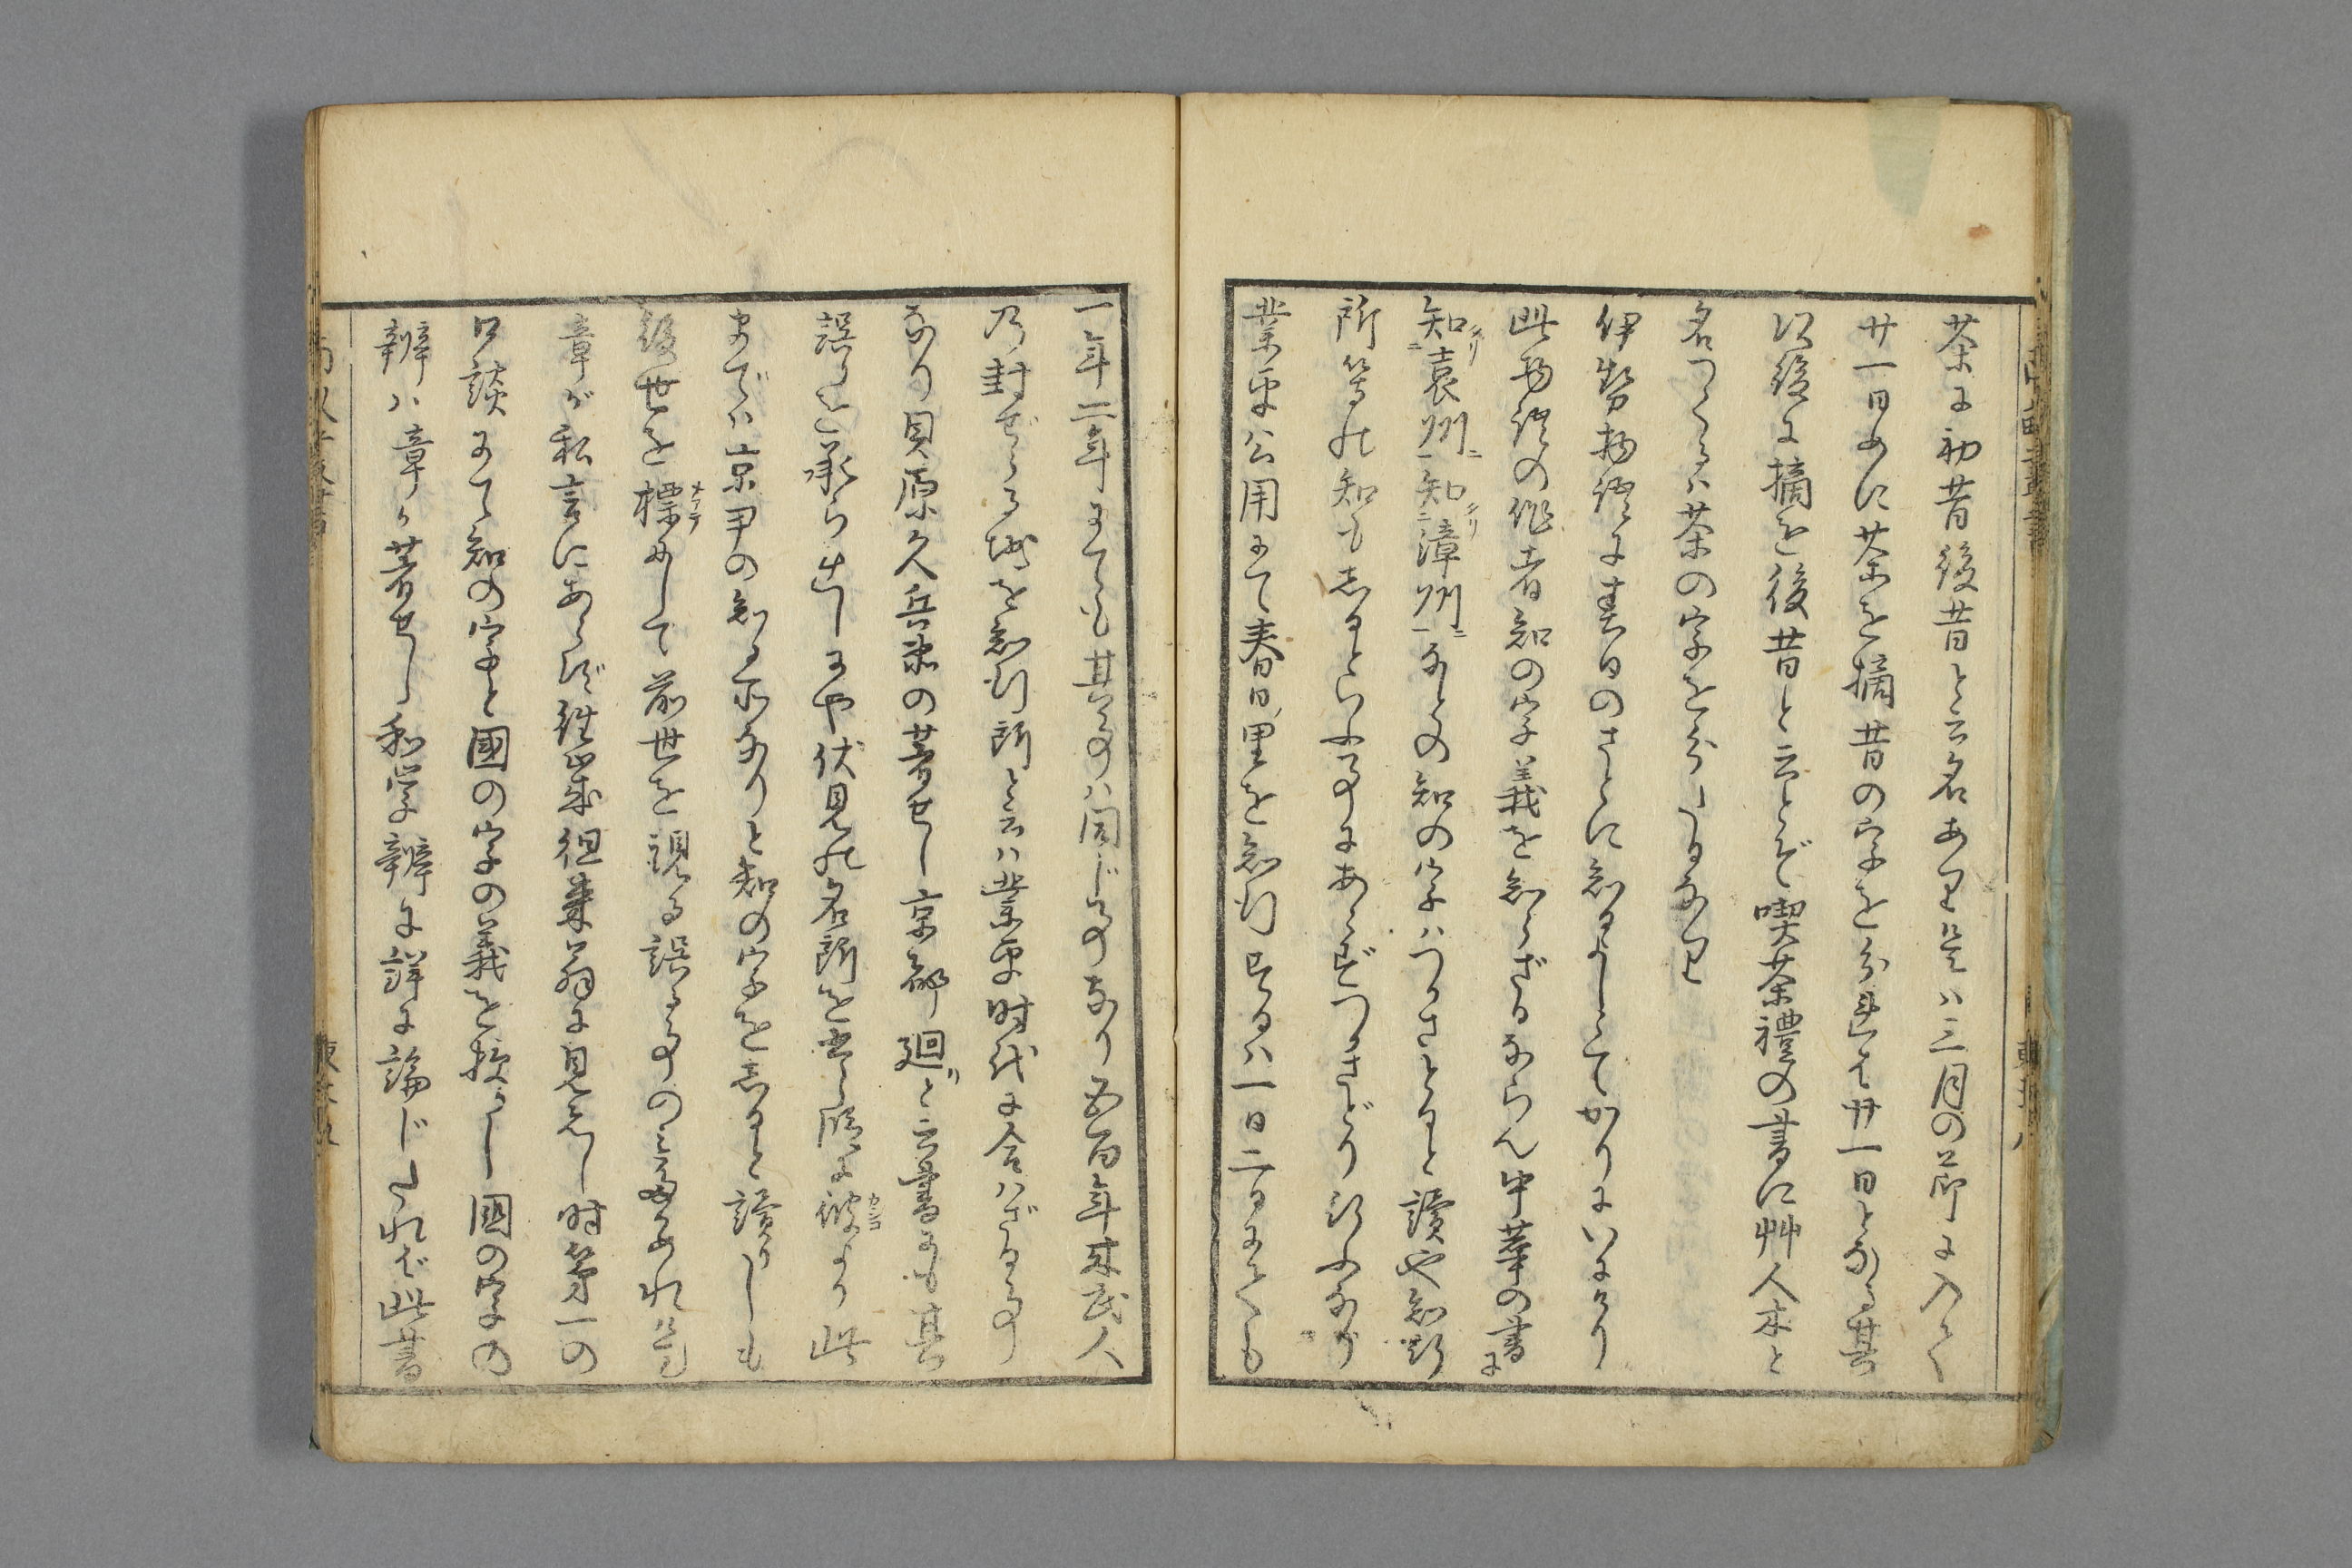 茶に初昔後昔と云名あり是ハ三月の節に入て
廿一日めに茶を摘昔の字を分れば廿一日となる其
次後に摘を後昔と云とぞ喫茶禮の書に艸人木と
名つくるハ茶の字を分したるなり
伊勢物語に春日のさとに知るよしゝてかりにいにけり
此物語の作者知の字義を知らざるならん中華の書に
知袁州知漳州などの知の字ハつかさとると讀や知行
所等の知もしるといふ事にあらずつかさどり行ふなり
業平ハ公用にて春日里を知行するハ一日二日にても
一年二年にても其事ハ同じ事なり五百年来武人
乃封ぜらる地を知行所と云ハ業平時代に合ハざる事
なり貝原久兵衛の著せし京都廻ど云書にも其
誤りを承ら出しにや伏見の名所を書し所に彼より此
までハ京甲の知る所なりと知の字をしると讀りしも
後世を標めして前世を視る誤る事の言なめれ是
章が私言にあらず往歳徂徠翁に見えし時第一の
口談にて知の字と國の字の義を授かりし國の字の
辨ハ章が著せし和学辨に詳に論じたれば此書